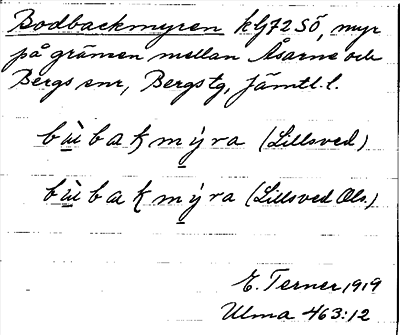 Bodbackmyren kG72 SÖ, myr
på gränsen mellan Åsarne och
Bergs snr, Bergs tg, Jämtl. l.
bù̲bakmý̲ra (Lillsved)
bù̲bakmý̲ra (Lillsved Ols.)
E. Terner 1919
Ulma 463:12